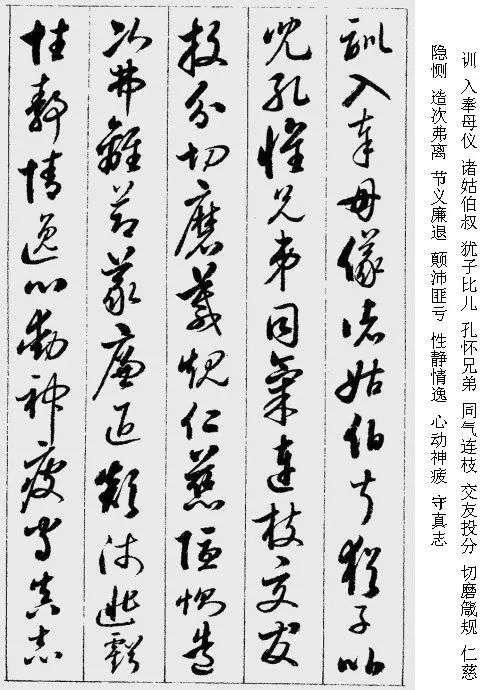 训 入奉母仪 诸姑伯叔 犹子比儿 孔怀兄弟 同气连枝 交友投分 切磨箴规 仁慈
隐恻 造次弗离 节义廉退 颠沛匪亏 性静情逸 心动神疲 守真志
訓入奉母儀諸姑伯叔猶子比
兒孔懷兄弟同氣連枝交友
投分切磨箴規仁慈隱惻造
次弗離節義廉退顛沛匪虧
性靜情逸心動神疲守真志